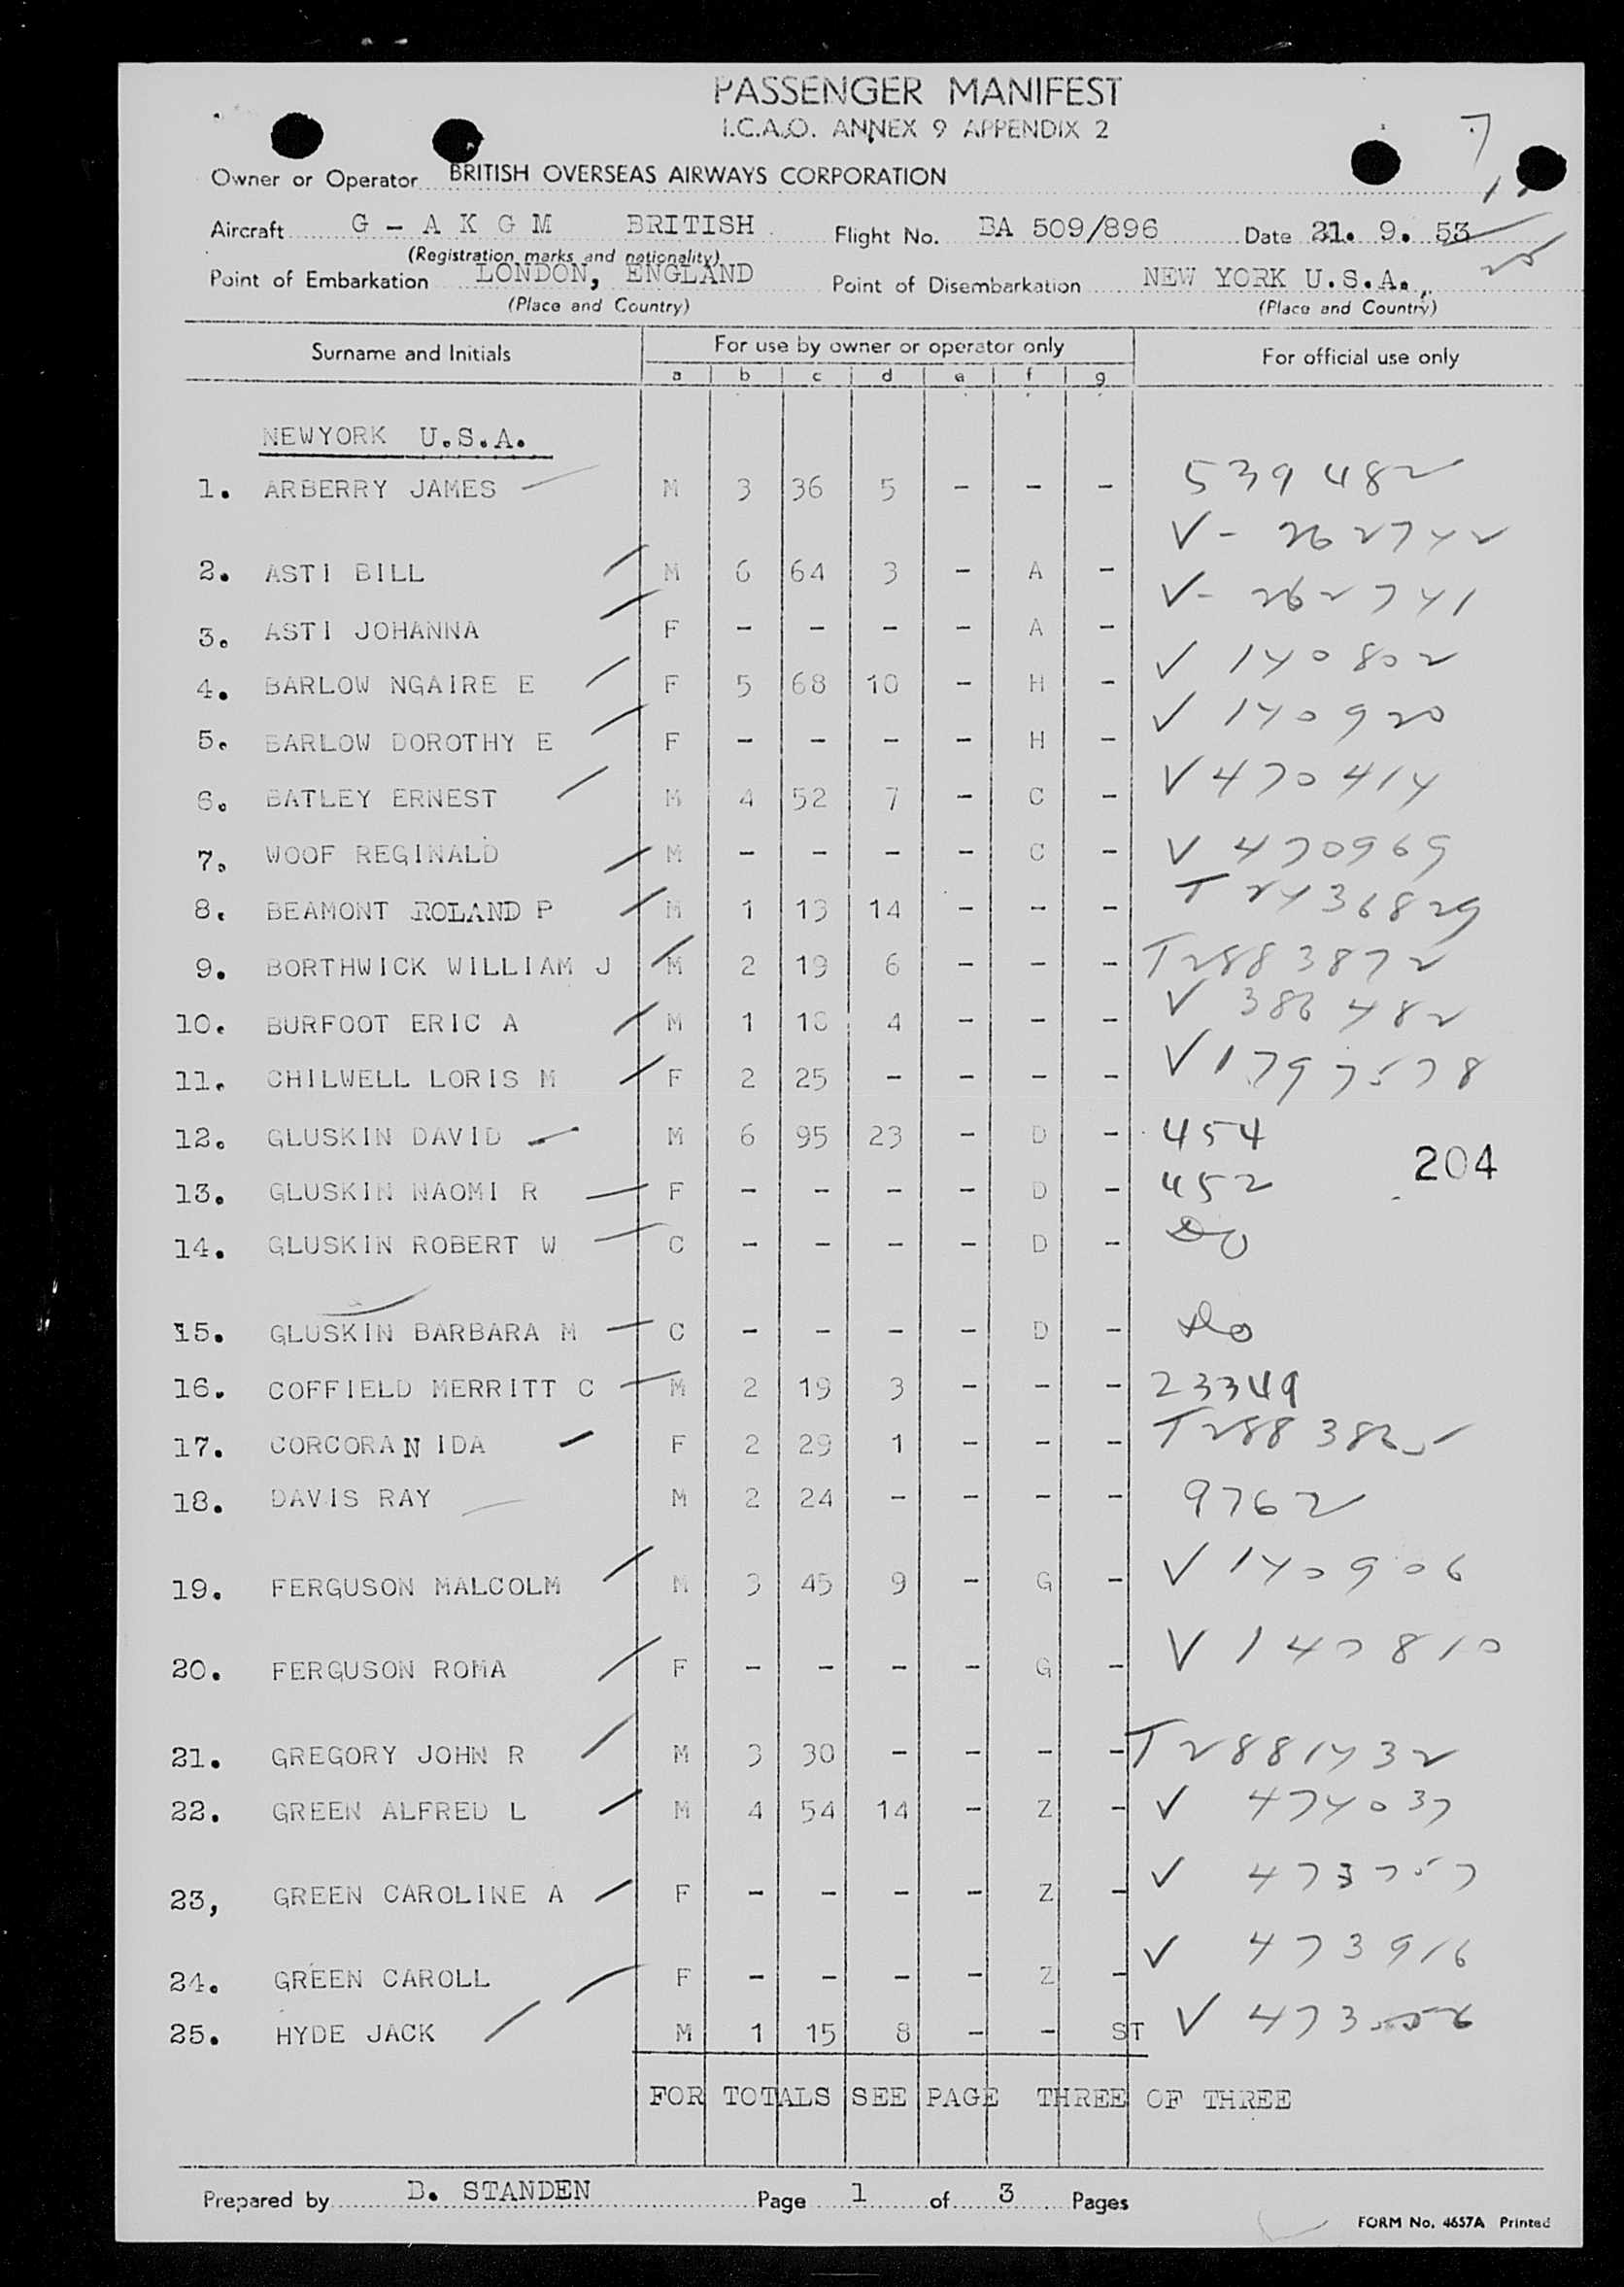 PASSENGER MANIFEST
I.C.A.O. ANNEX 9 APPENDIX 2
7
Owner or Operator BRITISH OVERSEAS AIRWAYS CORPORATION
Aircraft G - A K G M BRITISH Flight No. BA 509/896 Date 21. 9. 53
(Registration marks and nationality)
Point of Embarkation LONDON, ENGLAND Point of Disembarkation NEW YORK U.S.A.,
(Place and Country) (Place and Country)
Surname and Initials For use by owner or operator only For official use only
a b c d e f g
NEWYORK U.S.A.
1. ARBERRY JAMES M 3 36 5 - - - 539482
2. ASTI BILL M 6 64 3 - A - V- 262742
3. ASTI JOHANNA F - - - - A - V- 262741
4. BARLOW NGAIRE E F 5 68 10 - H - V 140802
5. BARLOW DOROTHY E F - - - - H - V 140920
6. BATLEY ERNEST M 4 52 7 - C - V 470414
7. WOOF REGINALD M - - - - C - V 470969
8. BEAMONT ROLAND P M 1 13 14 - - - T 2436829
9. BORTHWICK WILLIAM J M 2 19 6 - - - T2883872
10. BURFOOT ERIC A M 1 18 4 - - - V 386482
11. CHILWELL LORIS M F 2 25 - - - - V1797578
12. GLUSKIN DAVID M 6 95 23 - D - 454
204
13. GLUSKIN NAOMI R F - - - - D - 452
14. GLUSKIN ROBERT W C - - - - D - Do
15. GLUSKIN BARBARA M C - - - - D - Do
16. COFFIELD MERRITT C M 2 19 3 - - - 23349
17. CORCORAN IDA F 2 29 1 - - -
18. DAVIS RAY M 2 24 - - - - 9762
19. FERGUSON MALCOLM M 3 45 9 - G - V 140906
20. FERGUSON ROMA F - - - - G - V 140810
21. GREGORY JOHN R M 3 30 - - - - T2881432
22. GREEN ALFRED L M 4 54 14 - Z - V 474037
23, GREEN CAROLINE A F - - - - Z - V 473757
24. GREEN CAROLL F - - - - Z - V 473916
25. HYDE JACK M 1 15 8 - - ST V
FOR TOTALS SEE PAGE THREE OF THREE
Prepared by B. STANDEN Page 1 of 3 Pages
FORM No. 4657A Printed